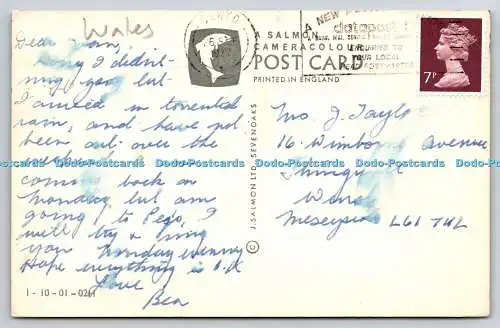 Wales
Dear Joan,
Sorry I didn't
ring you but
I arrived in torrential
rain, and have not
been out over the
coming back on
Monday, but am
going to Pego, I
will try & ring
you Monday evening
Hope everything is O.K
Love
Bea
1-10-01-02H
A SALMON
CAMERACOLOUR
POST CARD
PRINTED IN ENGLAND
© J. SALMON LTD., SEVENOAKS
A NEW
datapost
ENQUIRIES TO
YOUR LOCAL
HEAD POSTMASTER
7P
Mrs J. Taylor
16 Wimborne Avenue
Thingwall
Wirral
Merseyside L61 7UL
Dodo-Postcards Dodo-Postcards Dodo-Postcards Dodo-Postcards Dodo-Postcards